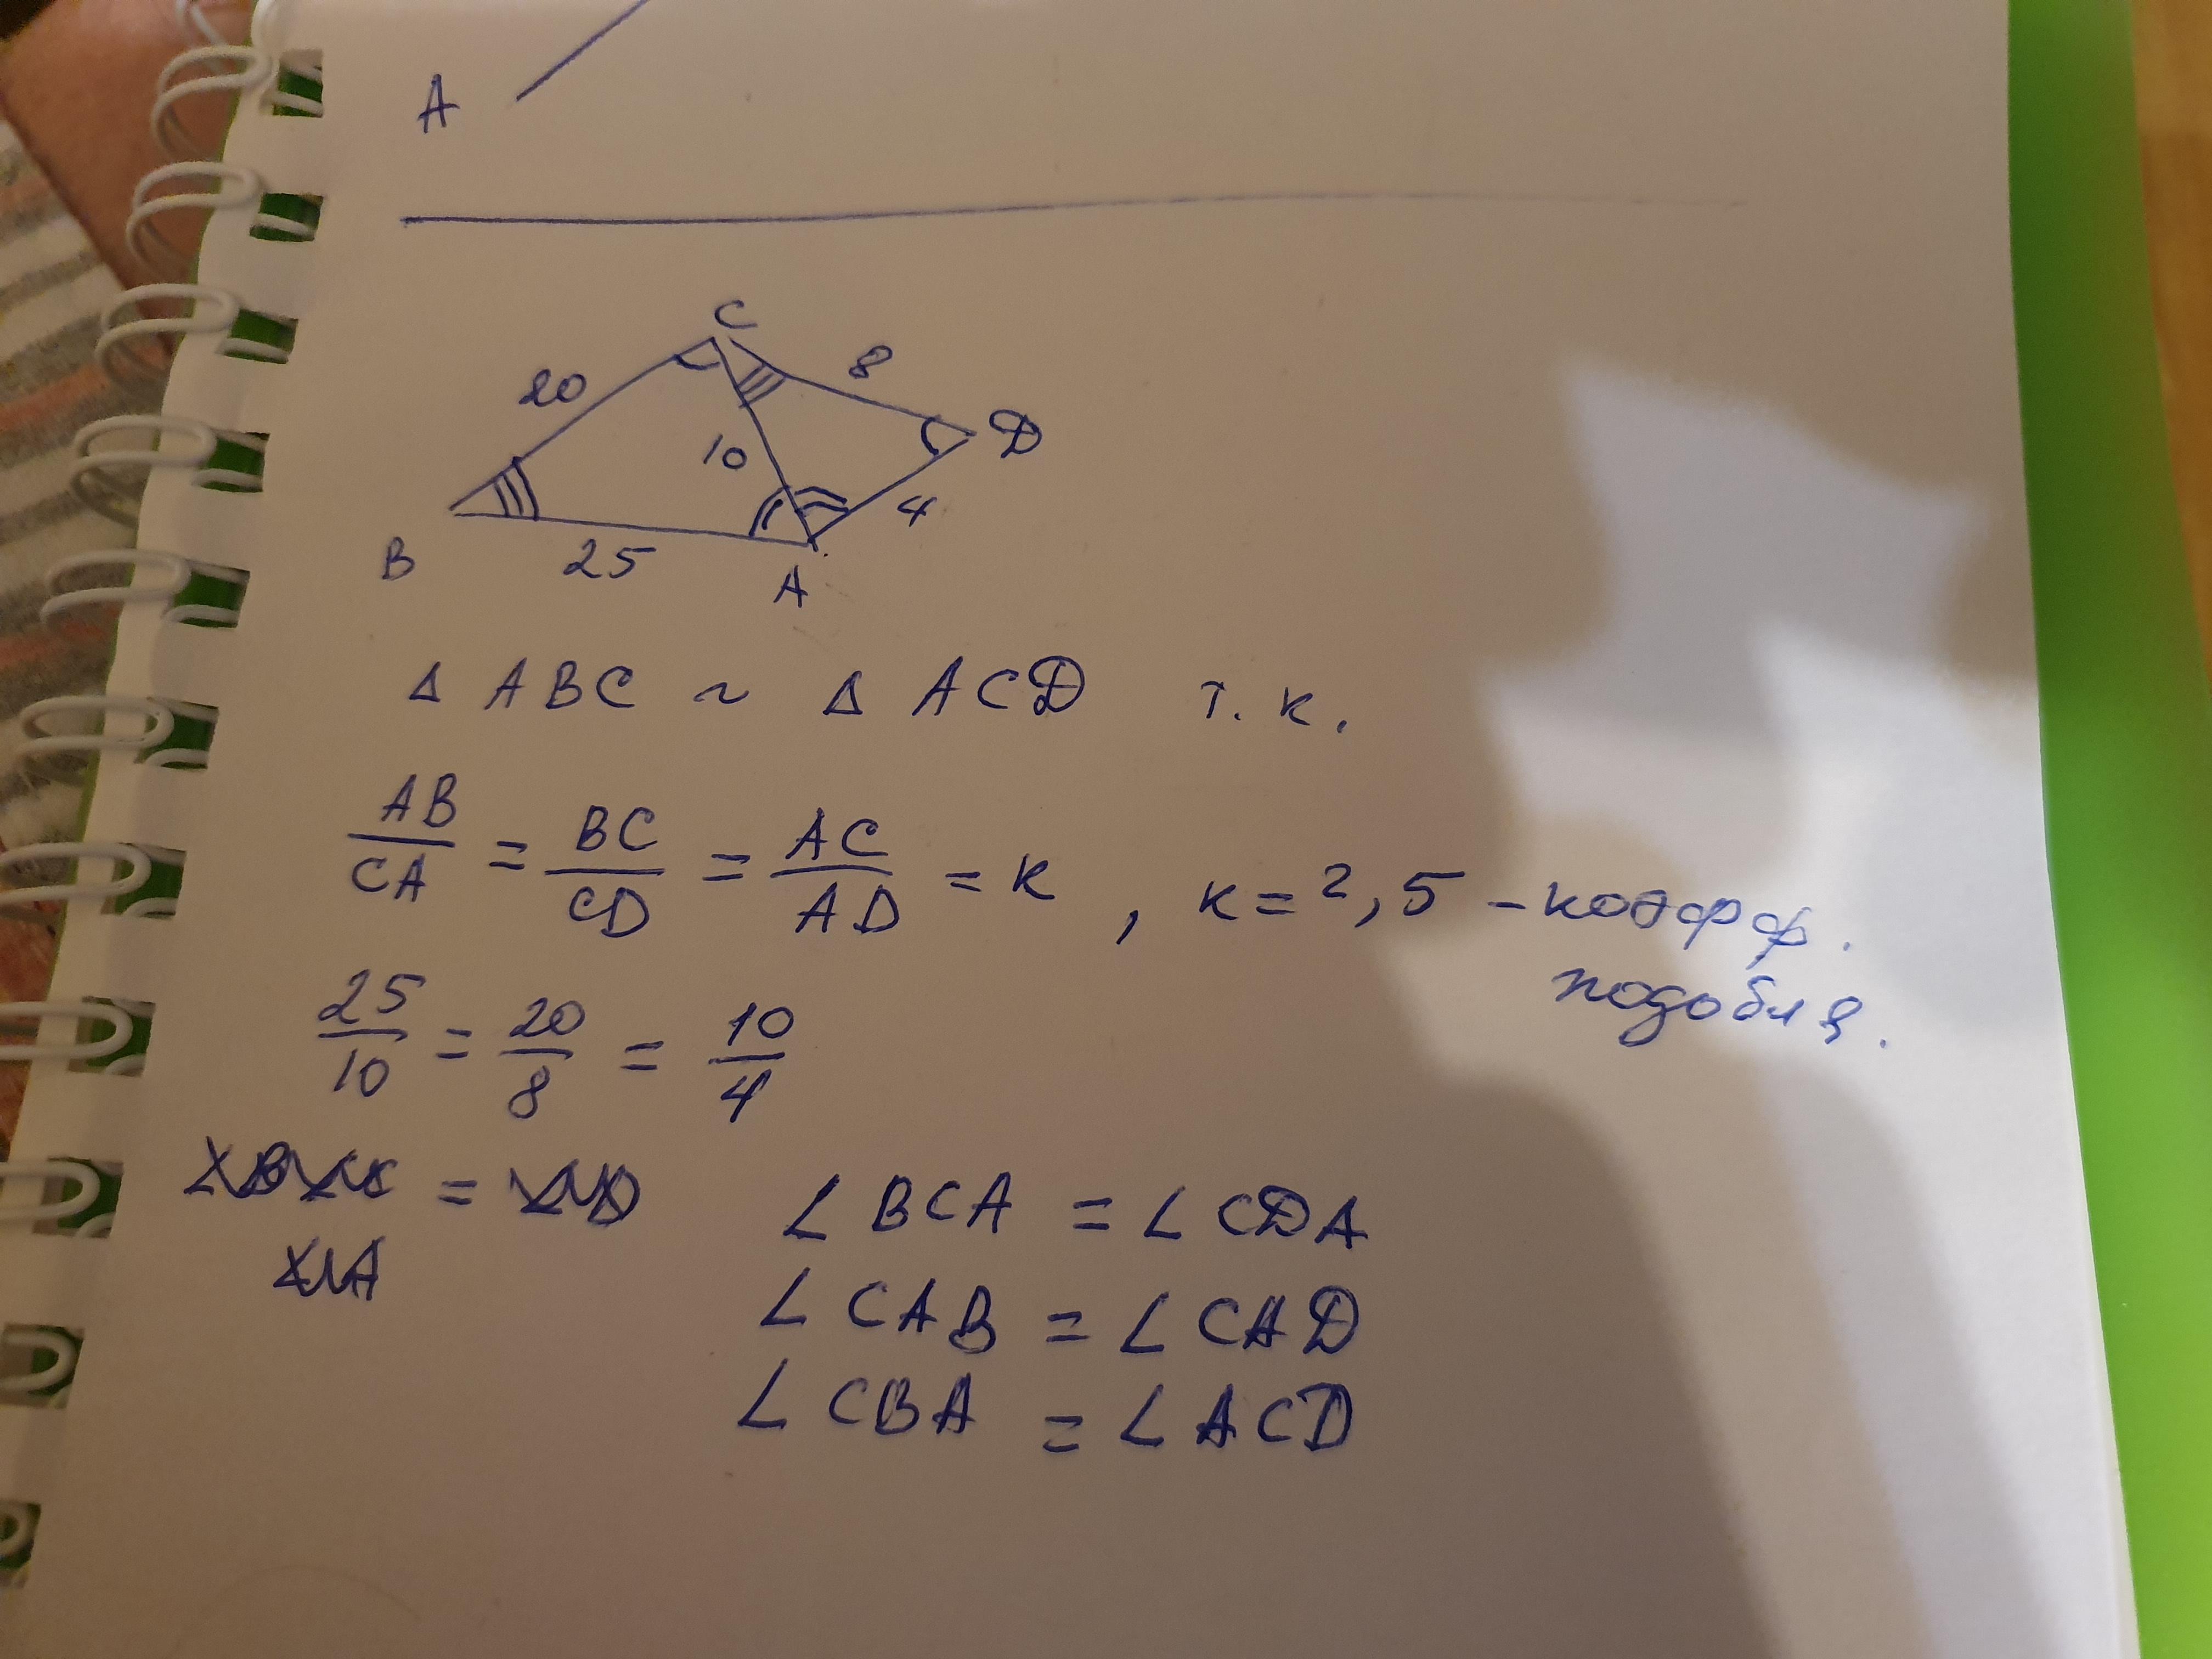 A
C
20
8
D
10
4
B
25
A
Δ ABC ~ Δ ACD т.к.
AB/CA = BC/CD = AC/AD = к, к = 2,5 – коэфф.
подобия.
25/10 = 20/8 = 10/4
∠ BCA = ∠ CDA
∠ CAB = ∠ CAD
∠ CBA = ∠ ACD